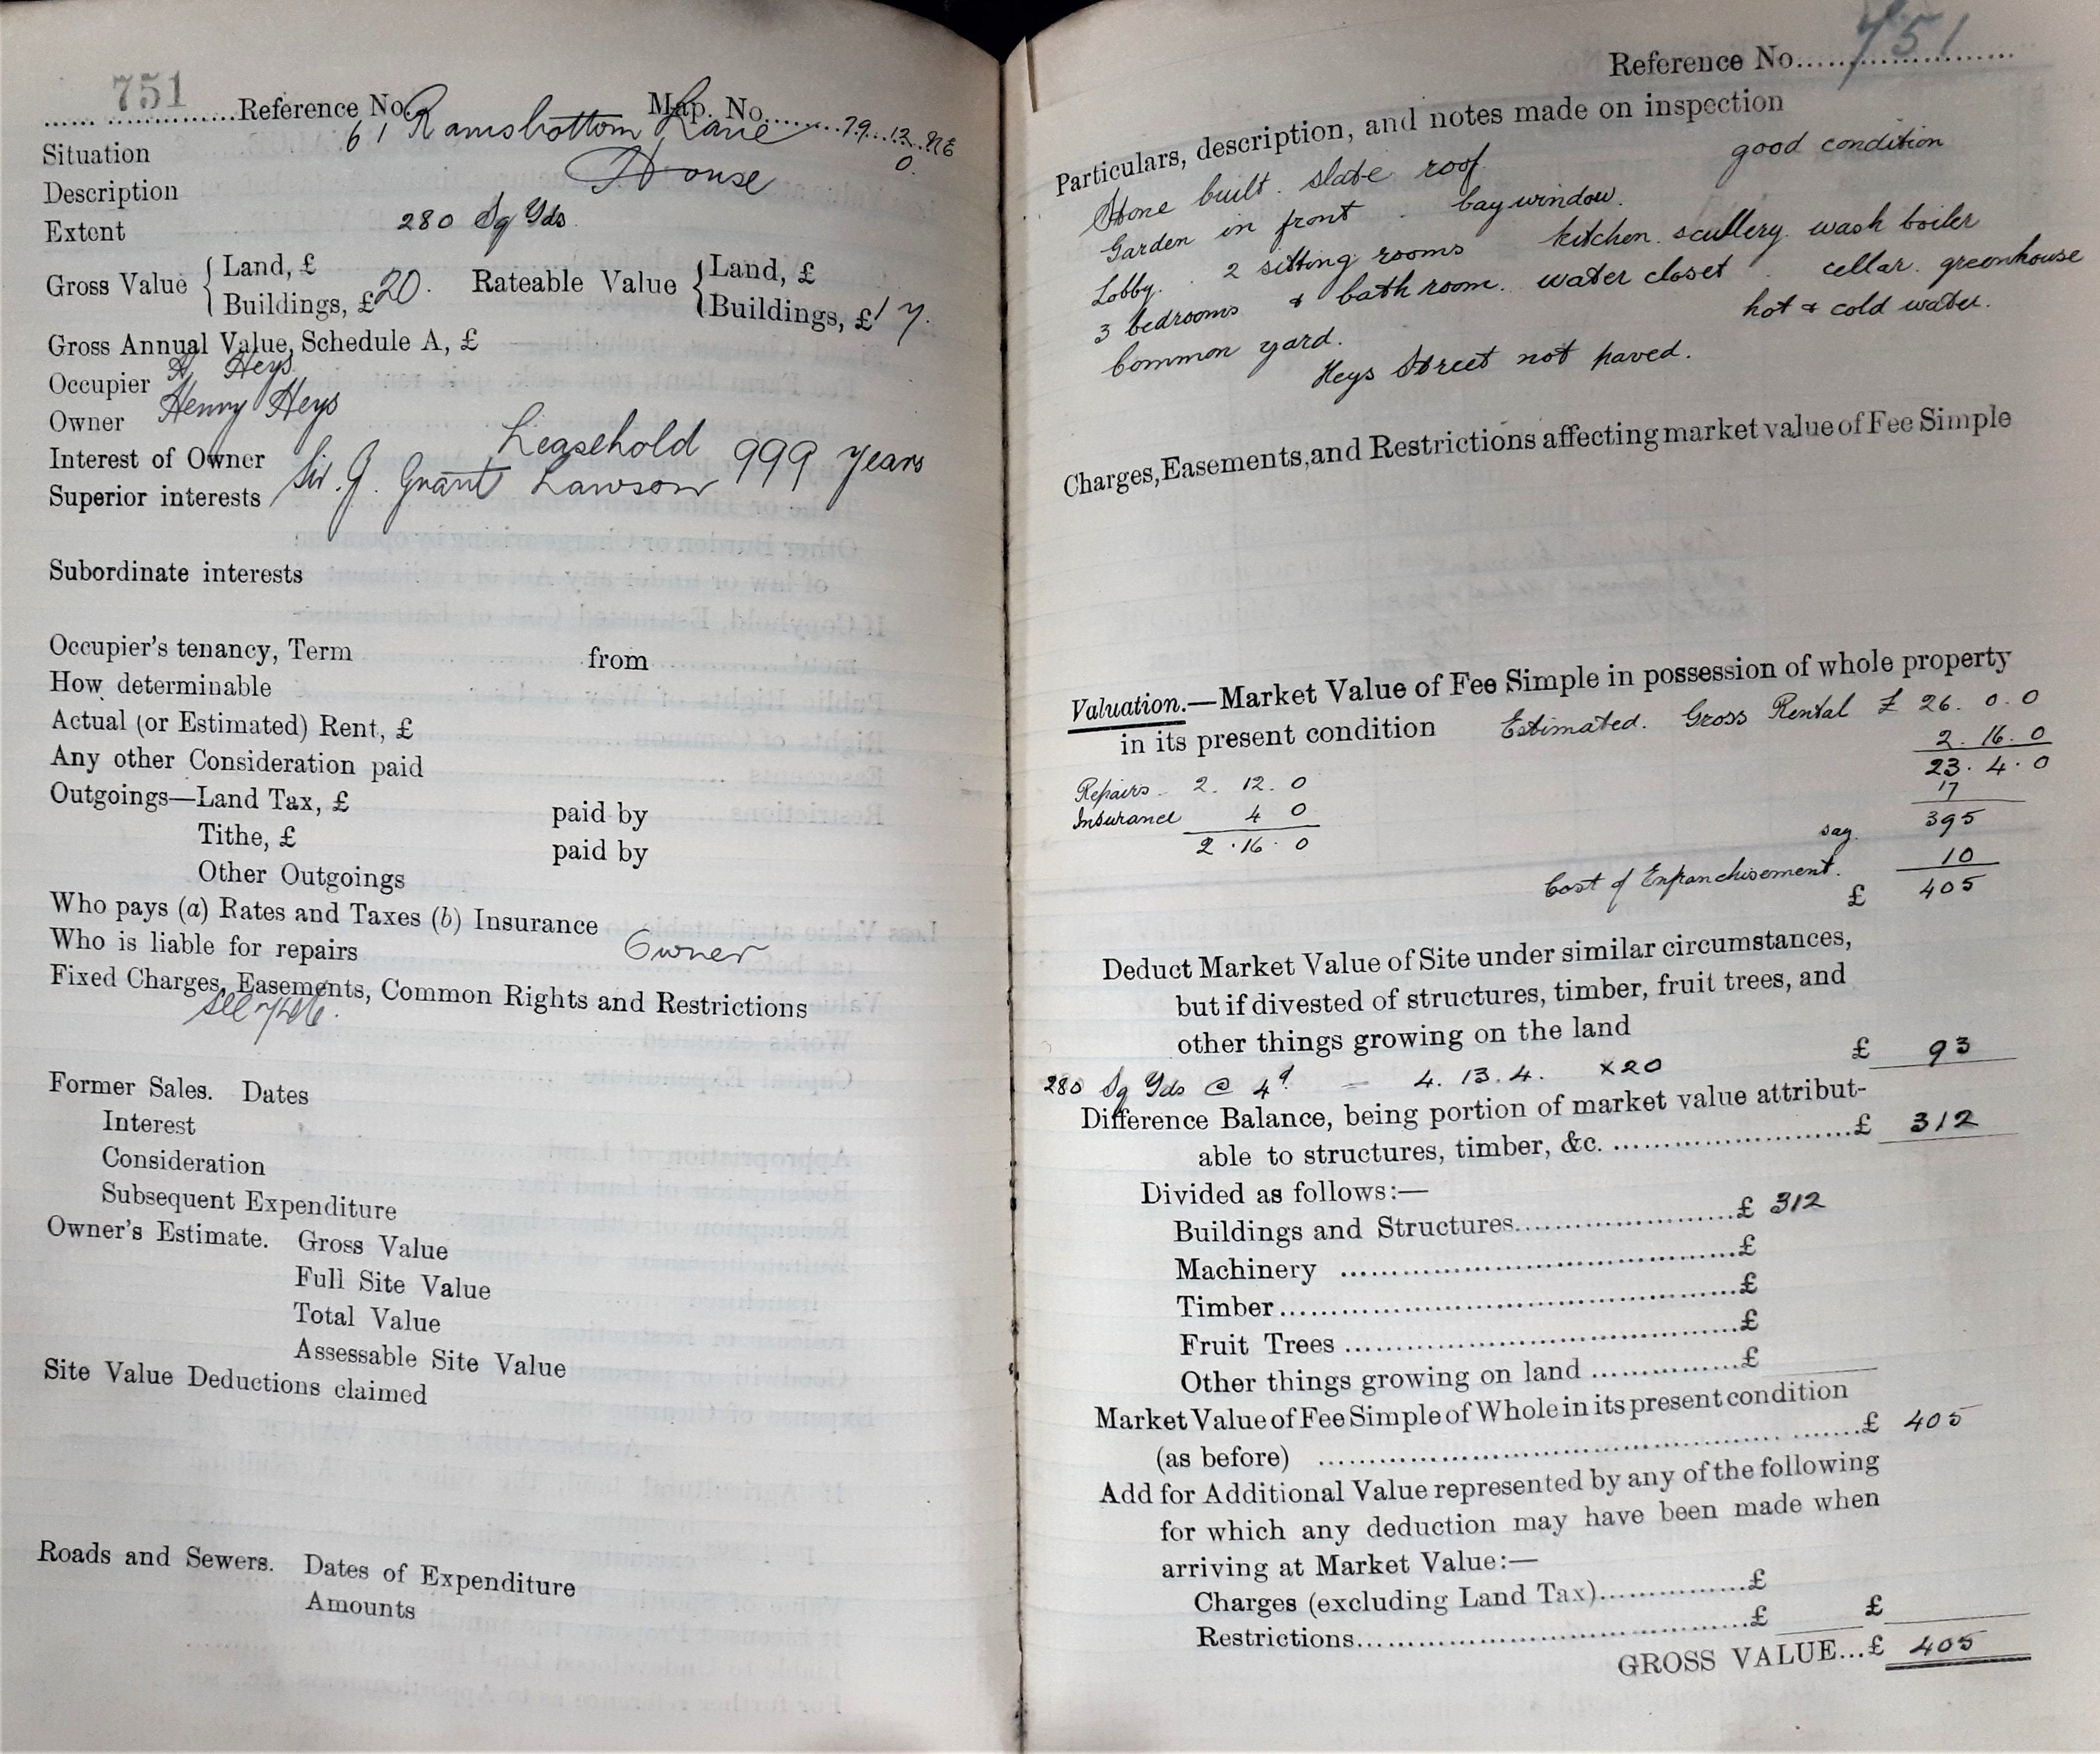 751
Reference No. Map. No. 79.12.NE
61 Ramsbottom Lane 0.
Situation
House
Description
Extent 280 Sq Yds.
Gross Value { Land, £ Rateable Value { Land, £
Buildings, £ 20. Buildings, £ 17.
Gross Annual Value, Schedule A, £
Occupier H. Heys
Owner Henry Heys
Interest of Owner Leasehold 999 years
Superior interests Sir. J. Grant Lawson
Subordinate interests
Occupier's tenancy, Term from
How determinable
Actual (or Estimated) Rent, £
Any other Consideration paid
Outgoings—Land Tax, £ paid by
Tithe, £ paid by
Other Outgoings
Who pays (a) Rates and Taxes (b) Insurance
Who is liable for repairs Owner
Fixed Charges, Easements, Common Rights and Restrictions
see
Former Sales. Dates
Interest
Consideration
Subsequent Expenditure
Owner's Estimate. Gross Value
Full Site Value
Total Value
Assessable Site Value
Site Value Deductions claimed
Roads and Sewers. Dates of Expenditure
Amounts
Reference No. 751
Particulars, description, and notes made on inspection
Stone built. slate roof good condition
Garden in front. bay window.
Lobby. 2 sitting rooms kitchen. scullery. wash boiler
3 bedrooms & bath room. water closet. cellar. greenhouse
Common yard. hot & cold water.
Heys Street not paved.
Charges, Easements, and Restrictions affecting market value of Fee Simple
Valuation.—Market Value of Fee Simple in possession of whole property
in its present condition Estimated. Gross Rental £ 26. 0. 0
2. 16. 0
Repairs 2. 12. 0 23. 4. 0
Insurance 4 0 17
2. 16. 0 say. 395
Cost of Enfranchisement. 10
£ 405
Deduct Market Value of Site under similar circumstances,
but if divested of structures, timber, fruit trees, and
other things growing on the land £ 93
280 Sq Yds @ 4d — 4. 13. 4. x20
Difference Balance, being portion of market value attribut-
able to structures, timber, &c. £ 312
Divided as follows:—
Buildings and Structures £ 312
Machinery £
Timber £
Fruit Trees £
Other things growing on land £
Market Value of Fee Simple of Whole in its present condition
(as before) £ 405
Add for Additional Value represented by any of the following
for which any deduction may have been made when
arriving at Market Value:—
Charges (excluding Land Tax) £
Restrictions £ £
GROSS VALUE...£ 405